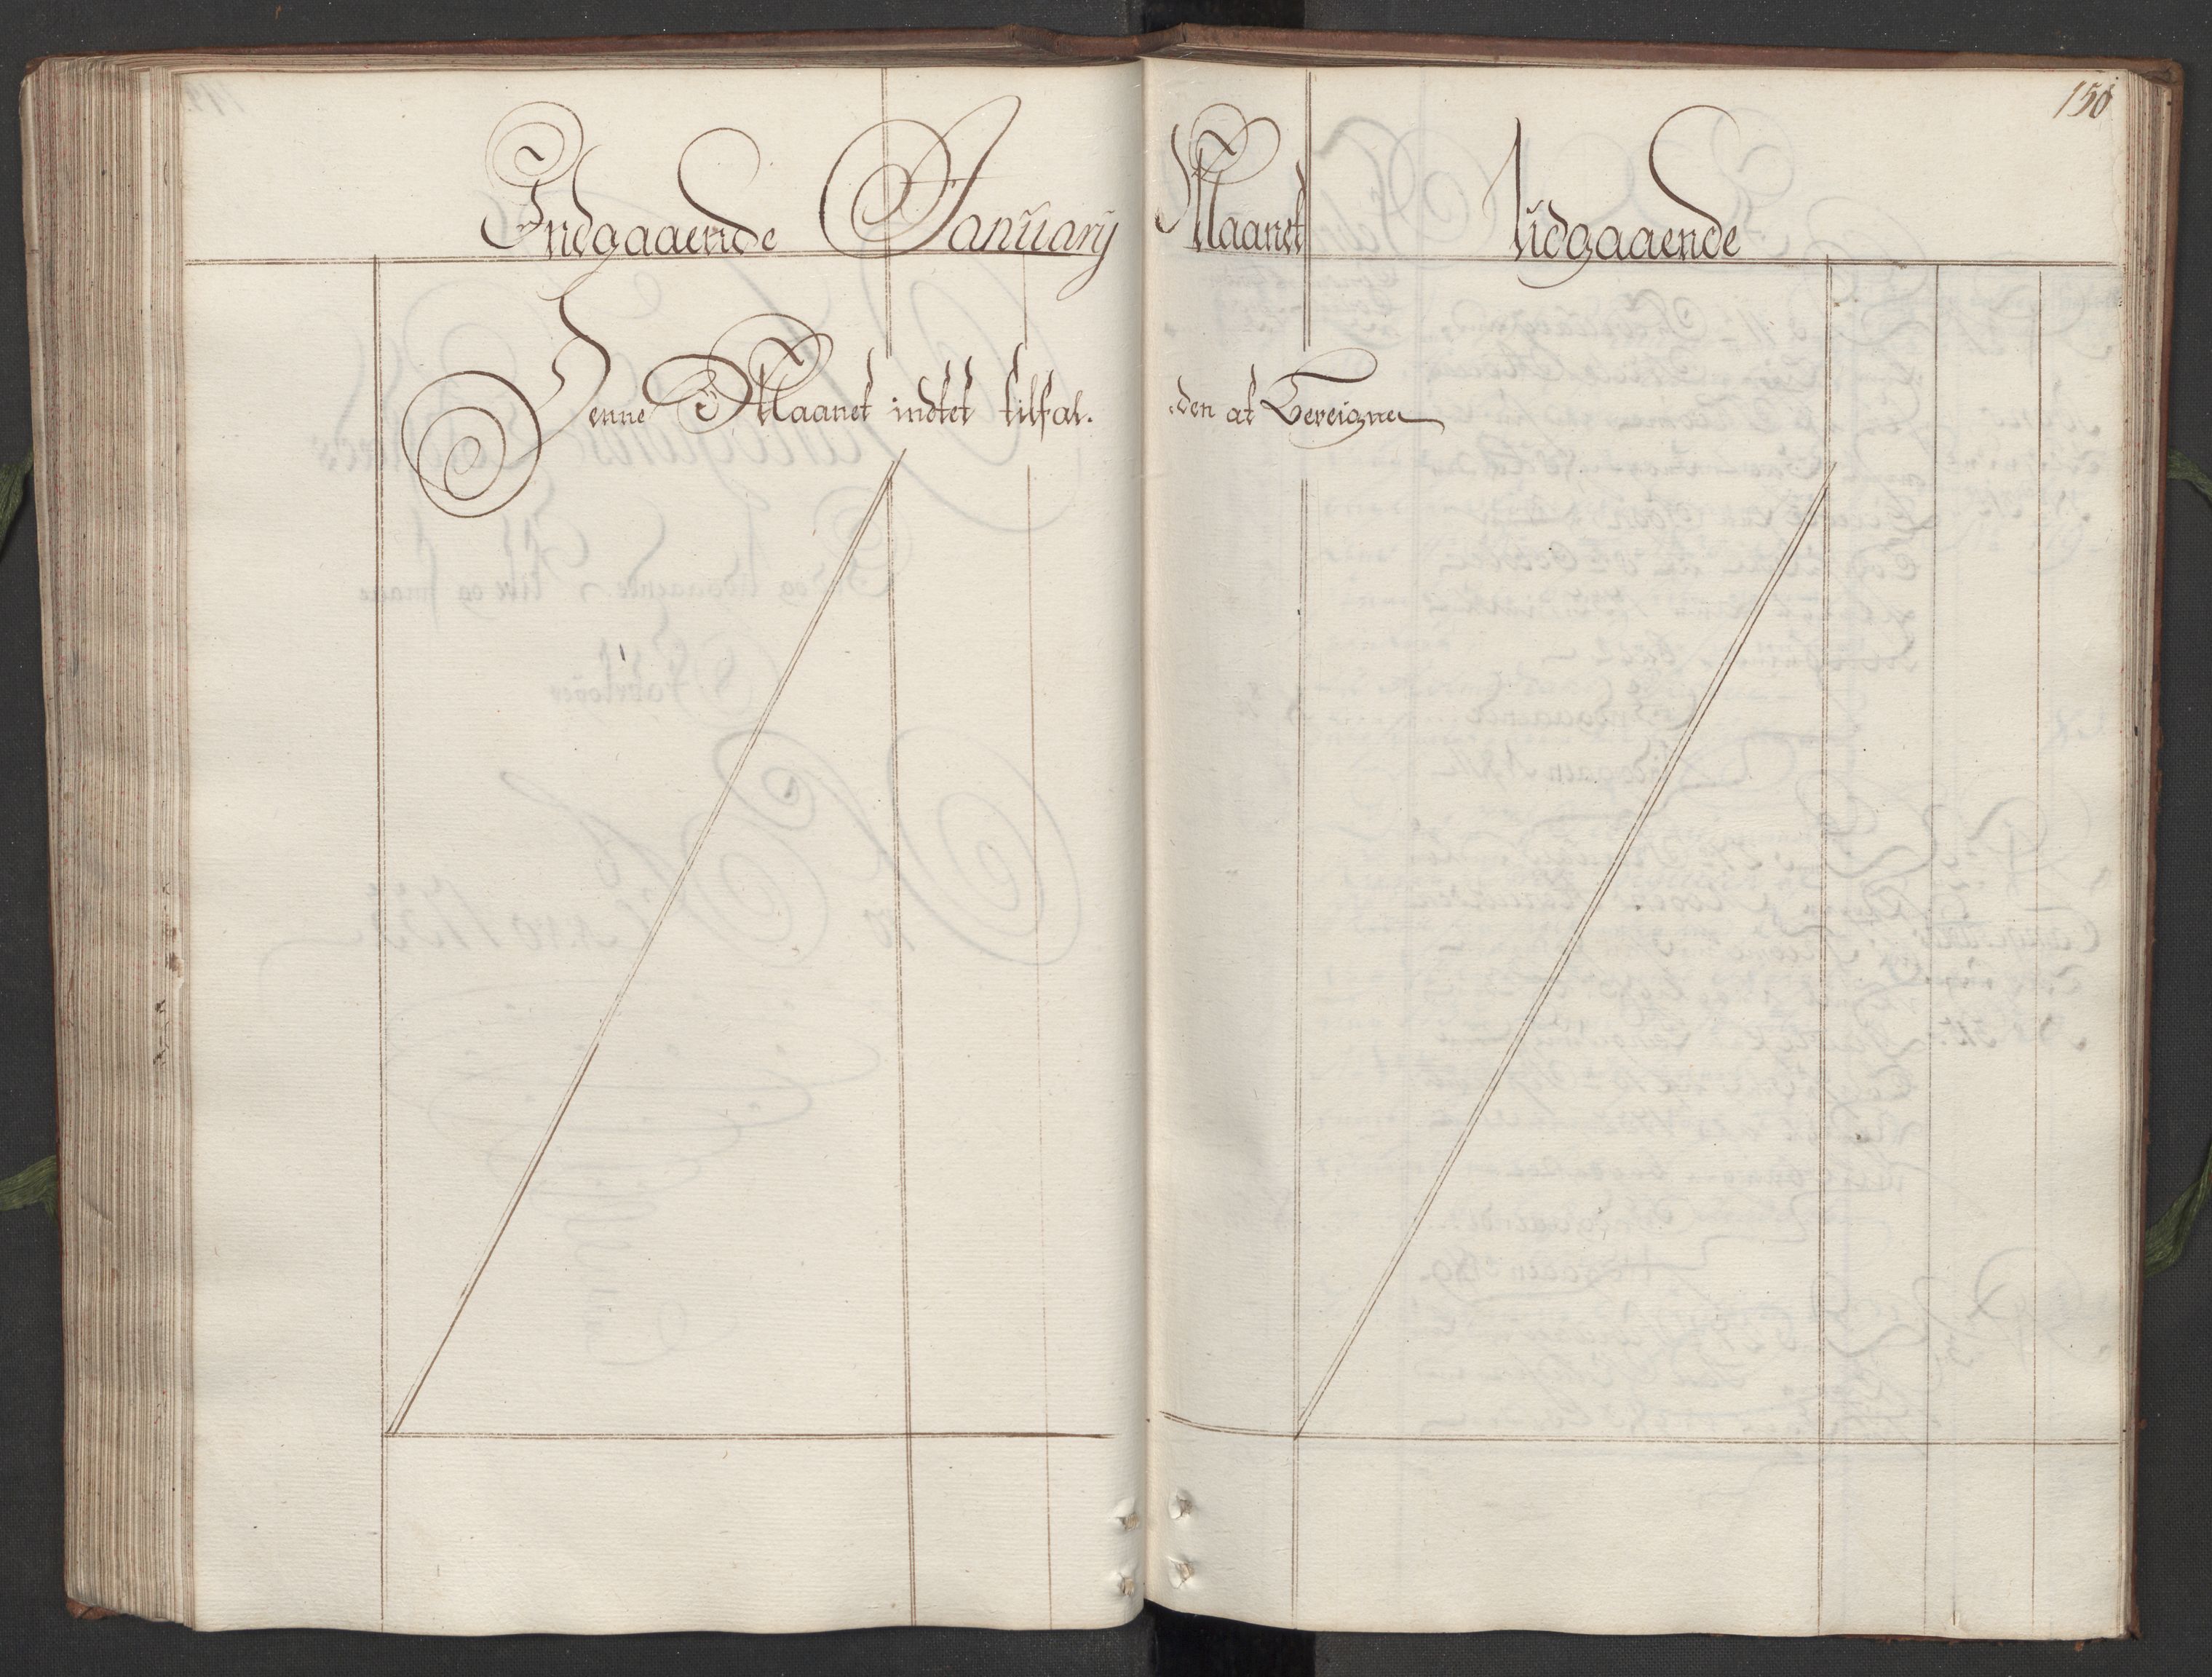 150
Indgaaende January Maanet Udgaaende
Denne Maanet indtet tilfal- den at Bereigne